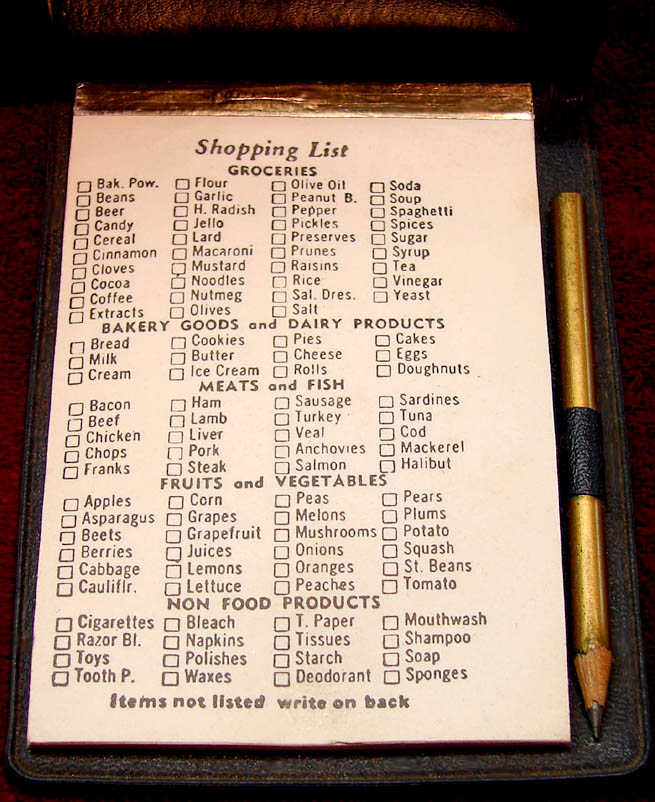 Shopping List
GROCERIES
Bak. Pow. Flour Olive Oil Soda
Beans Garlic Peanut B. Soup
Beer H. Radish Pepper Spaghetti
Candy Jello Pickles Spices
Cereal Lard Preserves Sugar
Cinnamon Macaroni Prunes Syrup
Cloves Mustard Raisins Tea
Cocoa Noodles Rice Vinegar
Coffee Nutmeg Sal. Dres. Yeast
Extracts Olives Salt
BAKERY GOODS and DAIRY PRODUCTS
Bread Cookies Pies Cakes
Milk Butter Cheese Eggs
Cream Ice Cream Rolls Doughnuts
MEATS and FISH
Bacon Ham Sausage Sardines
Beef Lamb Turkey Tuna
Chicken Liver Veal Cod
Chops Pork Anchovies Mackerel
Franks Steak Salmon Halibut
FRUITS and VEGETABLES
Apples Corn Peas Pears
Asparagus Grapes Melons Plums
Beets Grapefruit Mushrooms Potato
Berries Juices Onions Squash
Cabbage Lemons Oranges St. Beans
Cauliflr. Lettuce Peaches Tomato
NON FOOD PRODUCTS
Cigarettes Bleach T. Paper Mouthwash
Razor Bl. Napkins Tissues Shampoo
Toys Polishes Starch Soap
Tooth P. Waxes Deodorant Sponges
Items not listed write on back